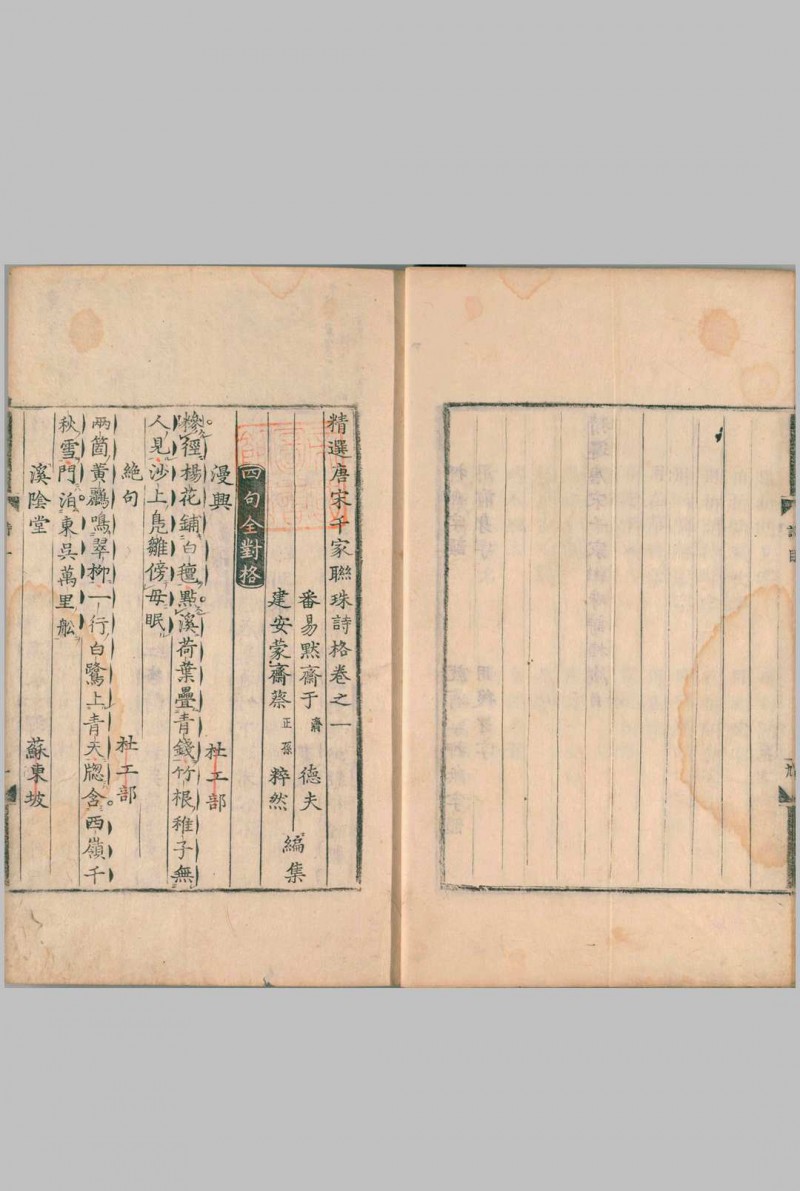 精選唐宋千家聯珠詩格卷之一
番易默齋于濟德夫
建安蒙齋蔡正孫粹然
編集
四句全對格
漫興 杜工部
糝徑楊花鋪白氊點溪荷葉疊青錢竹根稚子無
人見沙上鳧雛傍母眠
絶句 杜工部
兩箇黃鸝鳴翠柳一行白鷺上青天牕含西嶺千
秋雪門泊東吳萬里舩
溪陰堂 蘇東坡